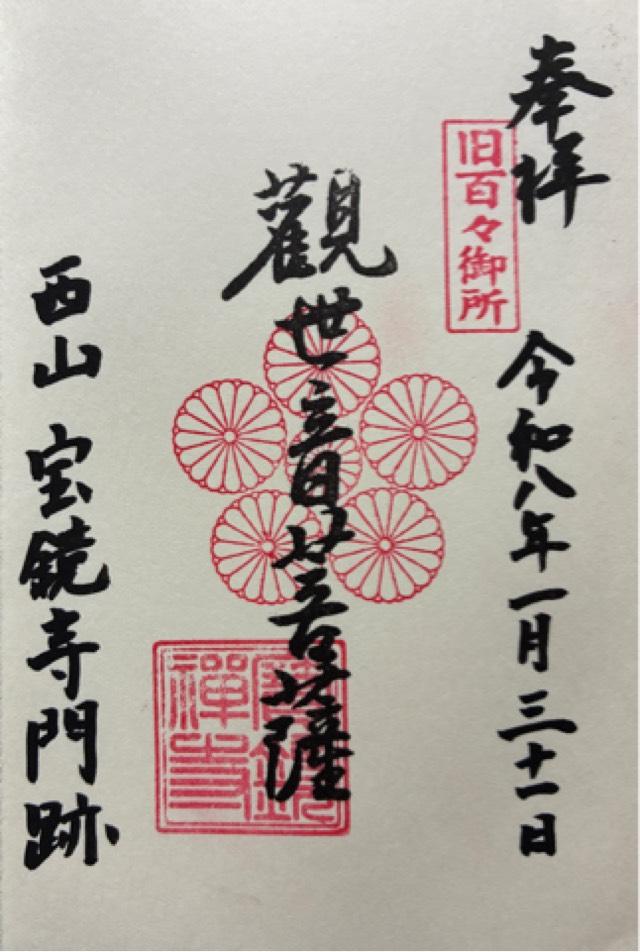 奉拝
旧百々御所
令和八年一月三十一日
觀世音菩薩
寶鏡禅寺
西山 宝鏡寺門跡